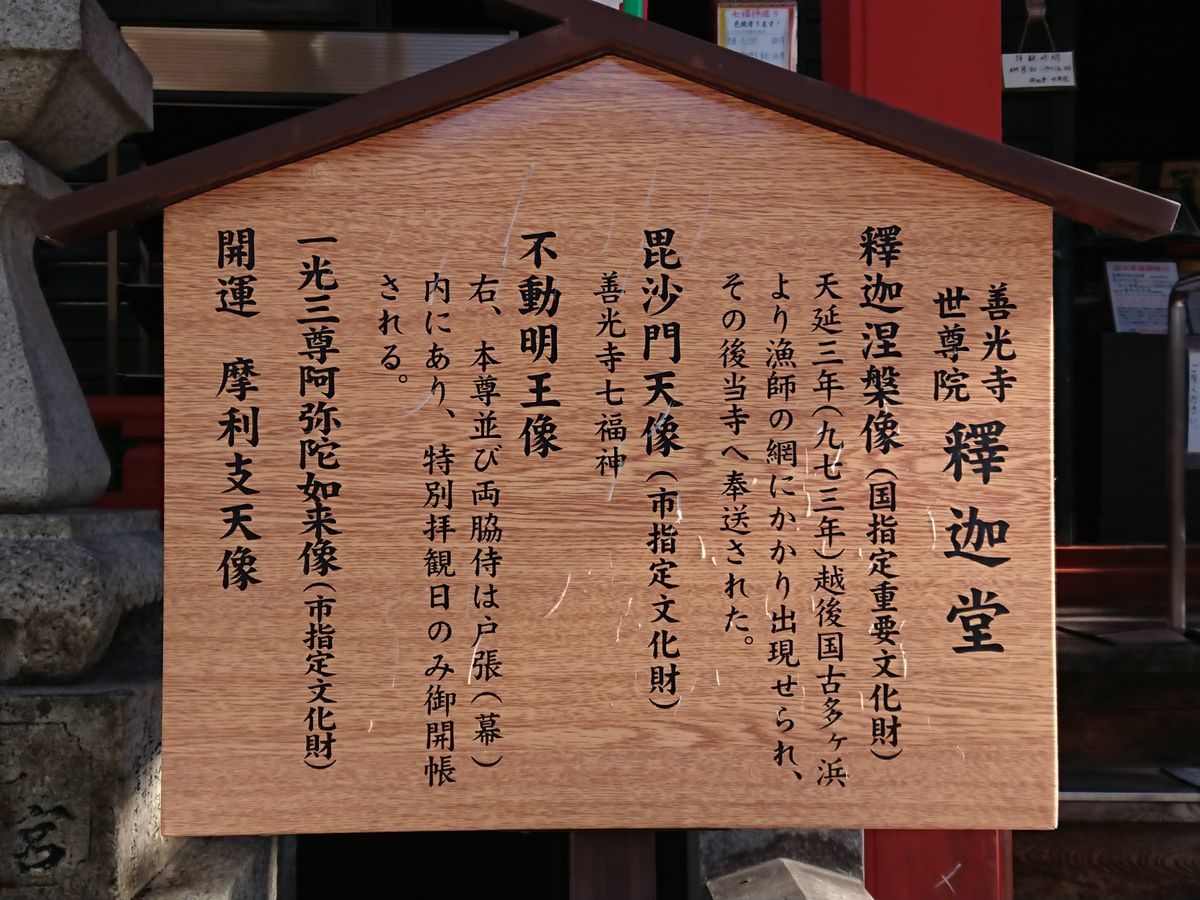 善光寺
世尊院
釋迦堂
釋迦涅槃像(国指定重要文化財)
天延三年(九七三年)越後国古多ヶ浜
より漁師の網にかかり出現せられ、
その後当寺へ奉送された。
毘沙門天像(市指定文化財)
善光寺七福神
不動明王像
右、本尊並び両脇侍は戸張(幕)
内にあり、特別拝観日のみ御開帳
される。
一光三尊阿弥陀如来像(市指定文化財)
開運 摩利支天像
七福神巡り
色紙有ります!
拝観時間
宮